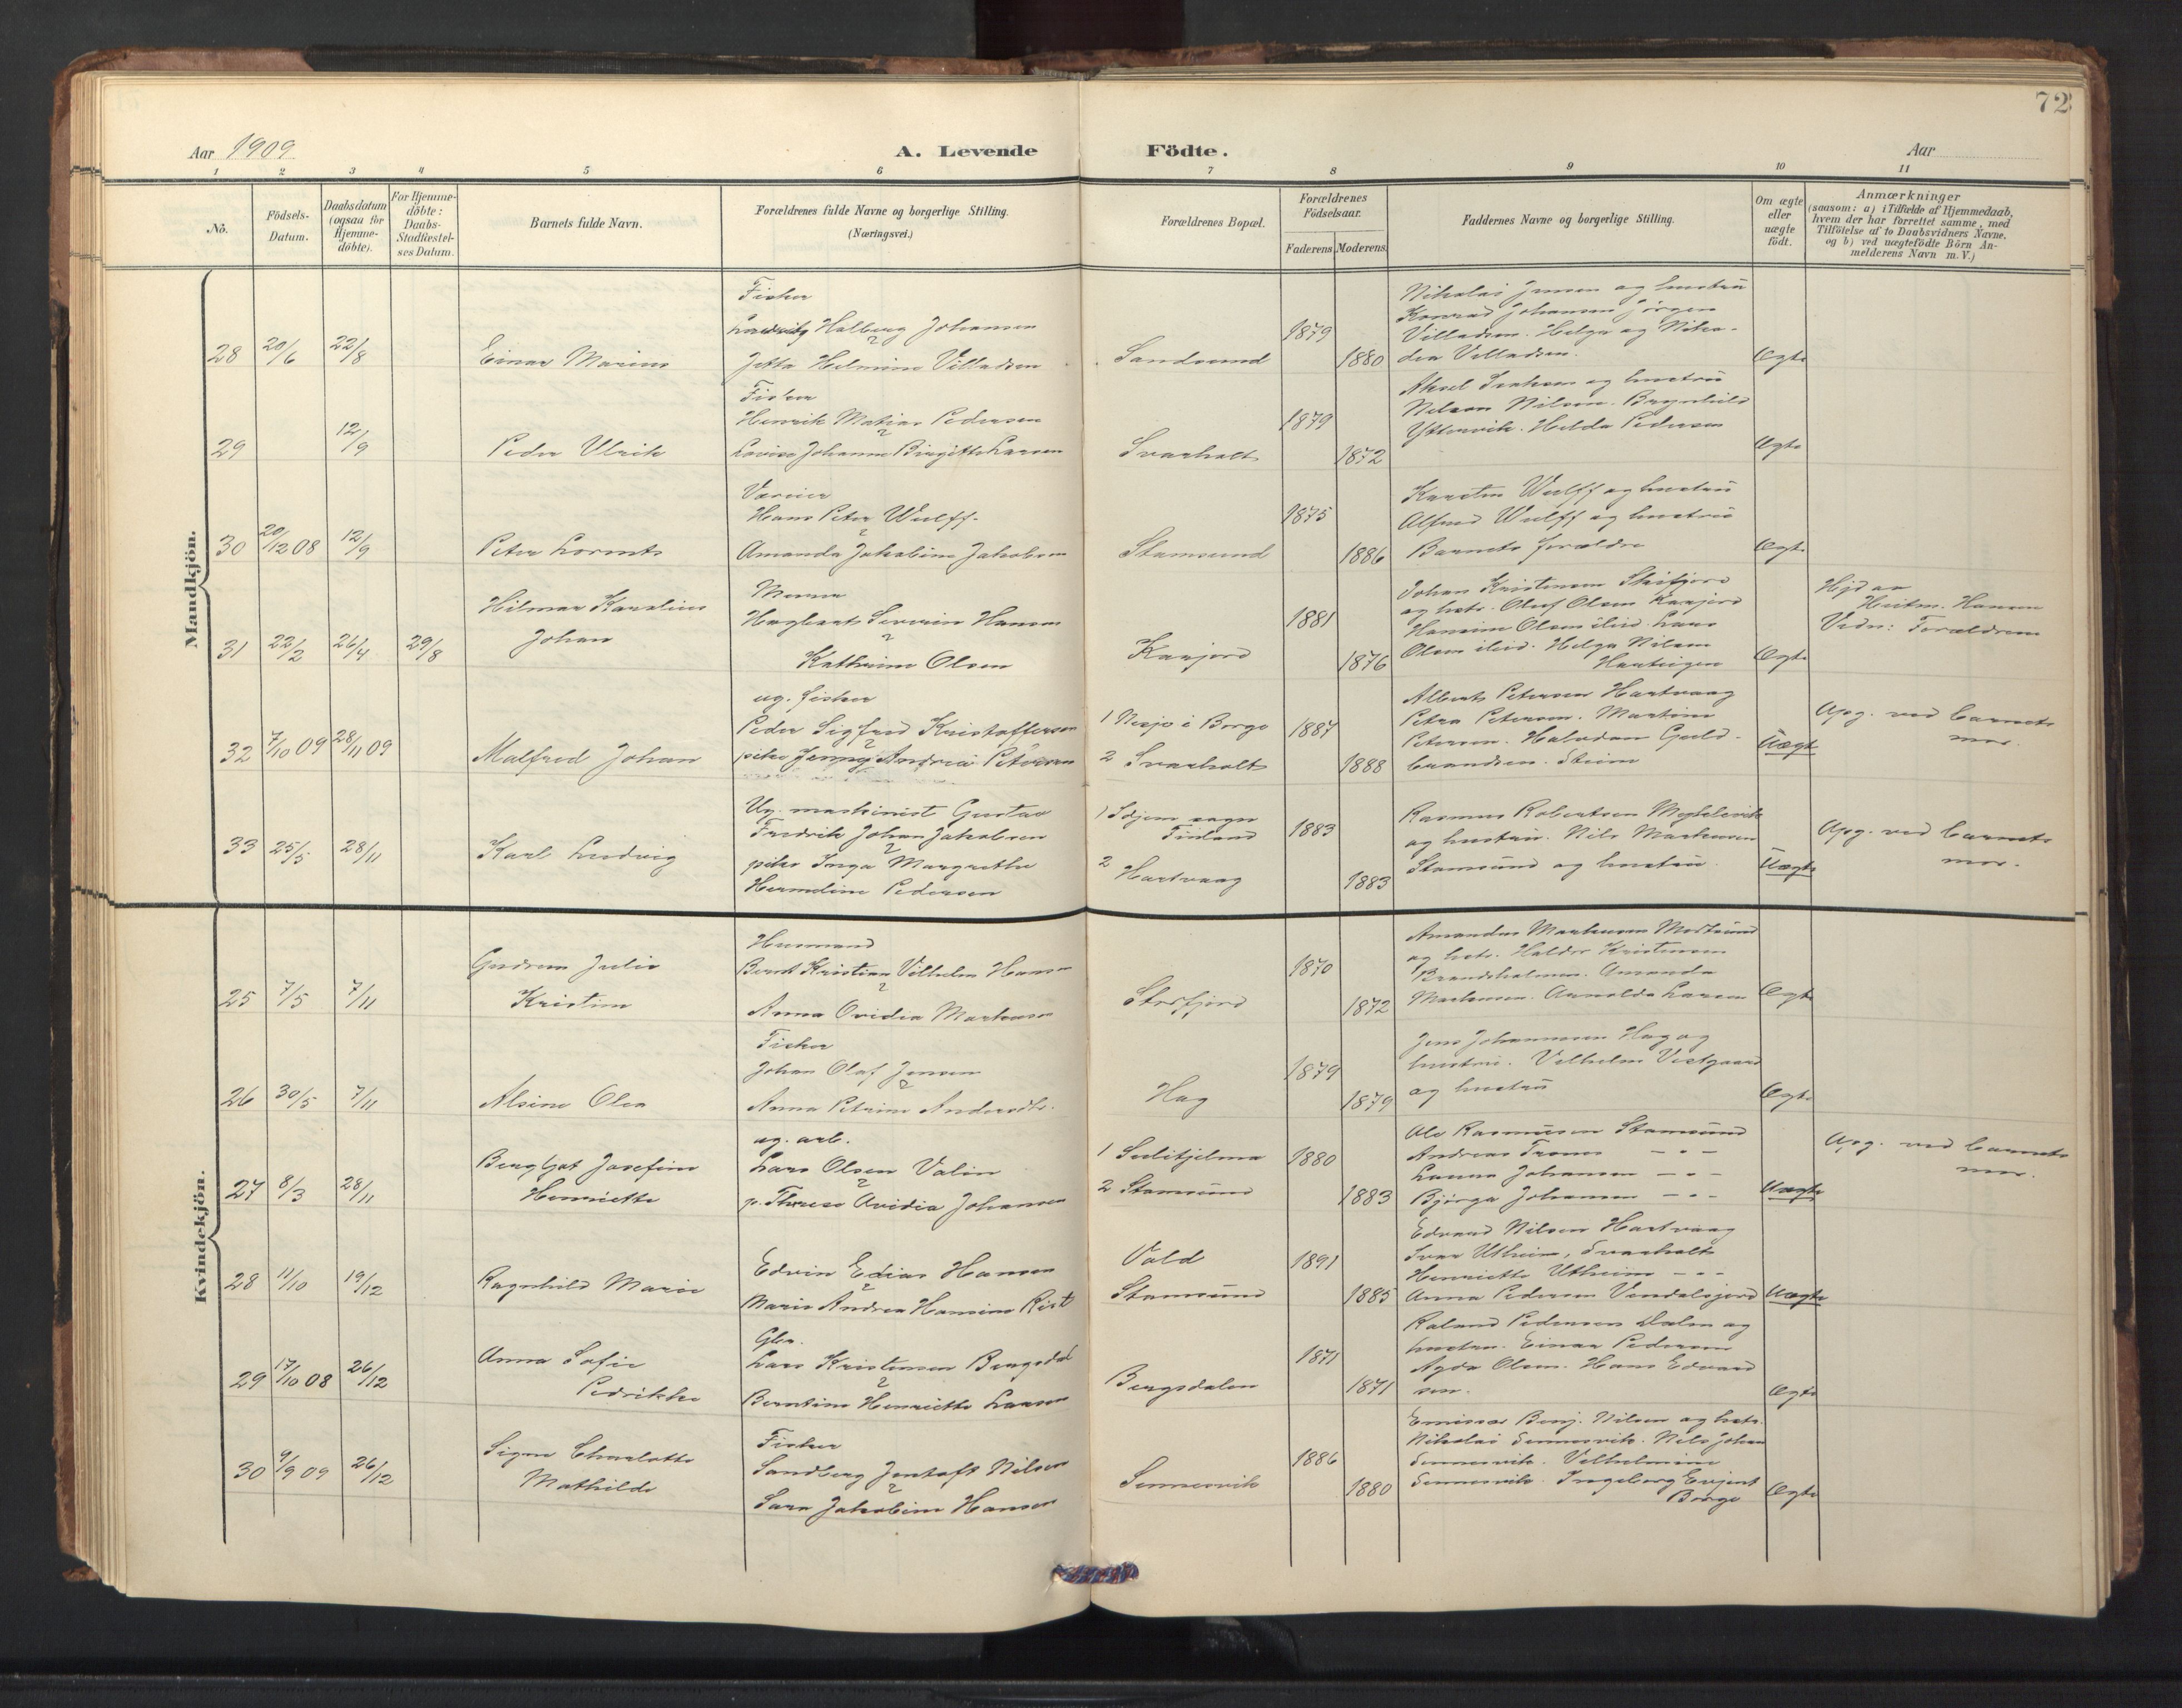 72
Aar 1909
A. Levende Födte.
Aar
1 2 3 4 5 6 7 8 9 10 11
No.
Födsels-Datum.
Daabsdatum (ogsaa för Hjemmedöbte).
For Hjemmedöbte: Daabs-Stadfæstelses Datum.
Barnets fulde Navn.
Forældrenes fulde Navne og borgerlige Stilling.
(Næringsvei.)
Forældrenes Bopæl.
Forældrenes Födselsaar.
Faderens Moderens
Faddernes Navne og borgerlige Stilling.
Om ægte eller uægte födt.
Anmærkninger
(saasom: a) i Tilfælde af Hjemmedaab,
hvem der har forrettet samme, med
Tilföielse af to Daabsvidners Navne,
og b) ved uægtefödte Börn An-
melderens Navn m. V.)
Mandkjön.
28 20/6 22/8 Einar Marius
Fisker
Halberg Johansen
Jetta Helmine Villadsen
Sandsund 1879 1880
Nikolai Jensen og hustru
Konrad Johansen Jørgen
Villadsen. Helga og Niko-
dea Villadsen.
Ægte
29 12/9 Peder Ulrik
Fisker
Henrik Matias Pedersen
Lovise Johanne Birgitte Larsen
Svarholt 1879 1872
Aksel Isaksen og hustru
Nelson Nilsen. Brynhild
Yttervik. Helda Pedersen
Ægte
30 20/12 08 12/9 Peter Lorents
Væreier
Hans Peter Wulff.
Amanda Jakobine Jakobsen
Stamsund 1875 1886
Karsten Wulff og hustru
Alfred Wulff og hustru
Barnets forældre
Ægte
31 22/2 26/4 29/8 Hilmar Karelius
Johan
Hagbart Severin Hansen
Kathrine Olsen
Kanjord 1881 1876
Johan Kristensen Skifjord
og hstr. Oluf Olsen Kanjord
Hansine Olsen ibid. Lars
Olsen ibid. Helga Nilsen
Hartvigen
Ægte
Hjd av
Heitm. Hansen
Vidn: Forældrene
32 7/10 09 28/11 09 Malfred Johan
ug. fisker
Peder Sigfred Kristoffersen
pike Jenny Andrea Petersen
1 Nesje i Borge
2 Svarholt
1887 1888
Albert Petersen Hartvaag
Petra Petersen. Martine
Petersen. Halvdan Guld-
brandsen. Steine
Uægte
Opg. ved barnets
mor.
33 25/5 28/11 Karl Ludvig
Ug. maskinist Gustav
Fredrik Johan Jakobsen
pike Inga Margrethe
Hermeline Pedersen
1 sogn
Finland
2 Hartvaag
1883 1883
Rasmus Robertsen
og hustru. Nils Markussen
Stamsund og hustru
Uægte
Opg. ved barnets
mor.
Kvindekjön.
25 7/5 7/11 Gudrun Julie
Kristine
Husmand
Bernt Kristian Vilhelm Hansen
Anna Ovidia Markussen
Storfjord 1870 1872
Amandus Markussen Mortsund
og hstr. Haldor Kristensen
Brandsholmen. Amanda
Markussen. Arnolda Larsen
Ægte
26 30/5 7/11 Alsine Olea
Fisker
Johan Olaf Jensen
Anna Petrine Andersdtr.
Hag 1879 1879
Jens Johannesen Hag og
hustru. Vilhelm Vestgaard
og hustru
Ægte
27 8/3 28/11 Bergljot Josefine
Henriette
ug. arb.
Lars Olsen Valin
p. Therese Ovidia Johansen
1 Sulitjelma
2 Stamsund
1880 1883
Ole Rasmussen Stamsund
Andreas Tromo — " —
Laura Johansen — " —
Bjørga Johansen — " —
Uægte
Opg. ved barnets
mor.
28 11/10 19/12 Ragnhild Marie
Edvin Edias Hansen
Marie Andrea Hansine Rist
Vold
Stamsund
1891 1885
Edvard Nilsen Hartvaag
Ivar Utheim, Svarholt
Henriette Utheim — " —
Anna Pedersen Vendalsjord
Uægte
29 17/10 08 26/12 Anna Sofie
Pedrikke
Gbr.
Lars Kristensen Bergsdal
Berntine Henriette Larsen
Bergsdalen 1871 1871
Roland Pedersen Dalen og
hustru. Einar Pedersen
Agda Olsen. Hans Edvard
sen.
Ægte
30 9/9 09 26/12 Signe Charlotte
Mathilde
Fisker
Sandberg Jentoft Nilsen
Sara Jakobine Hansen
Sennesvik 1886 1880
Emissær Benj. Nilsen og hstr.
Nikolai Sennesvik. Nils Johan
Sennesvik. Vilhelmine
Sennesvik. Ingeborg Evjent
Borge
Ægte